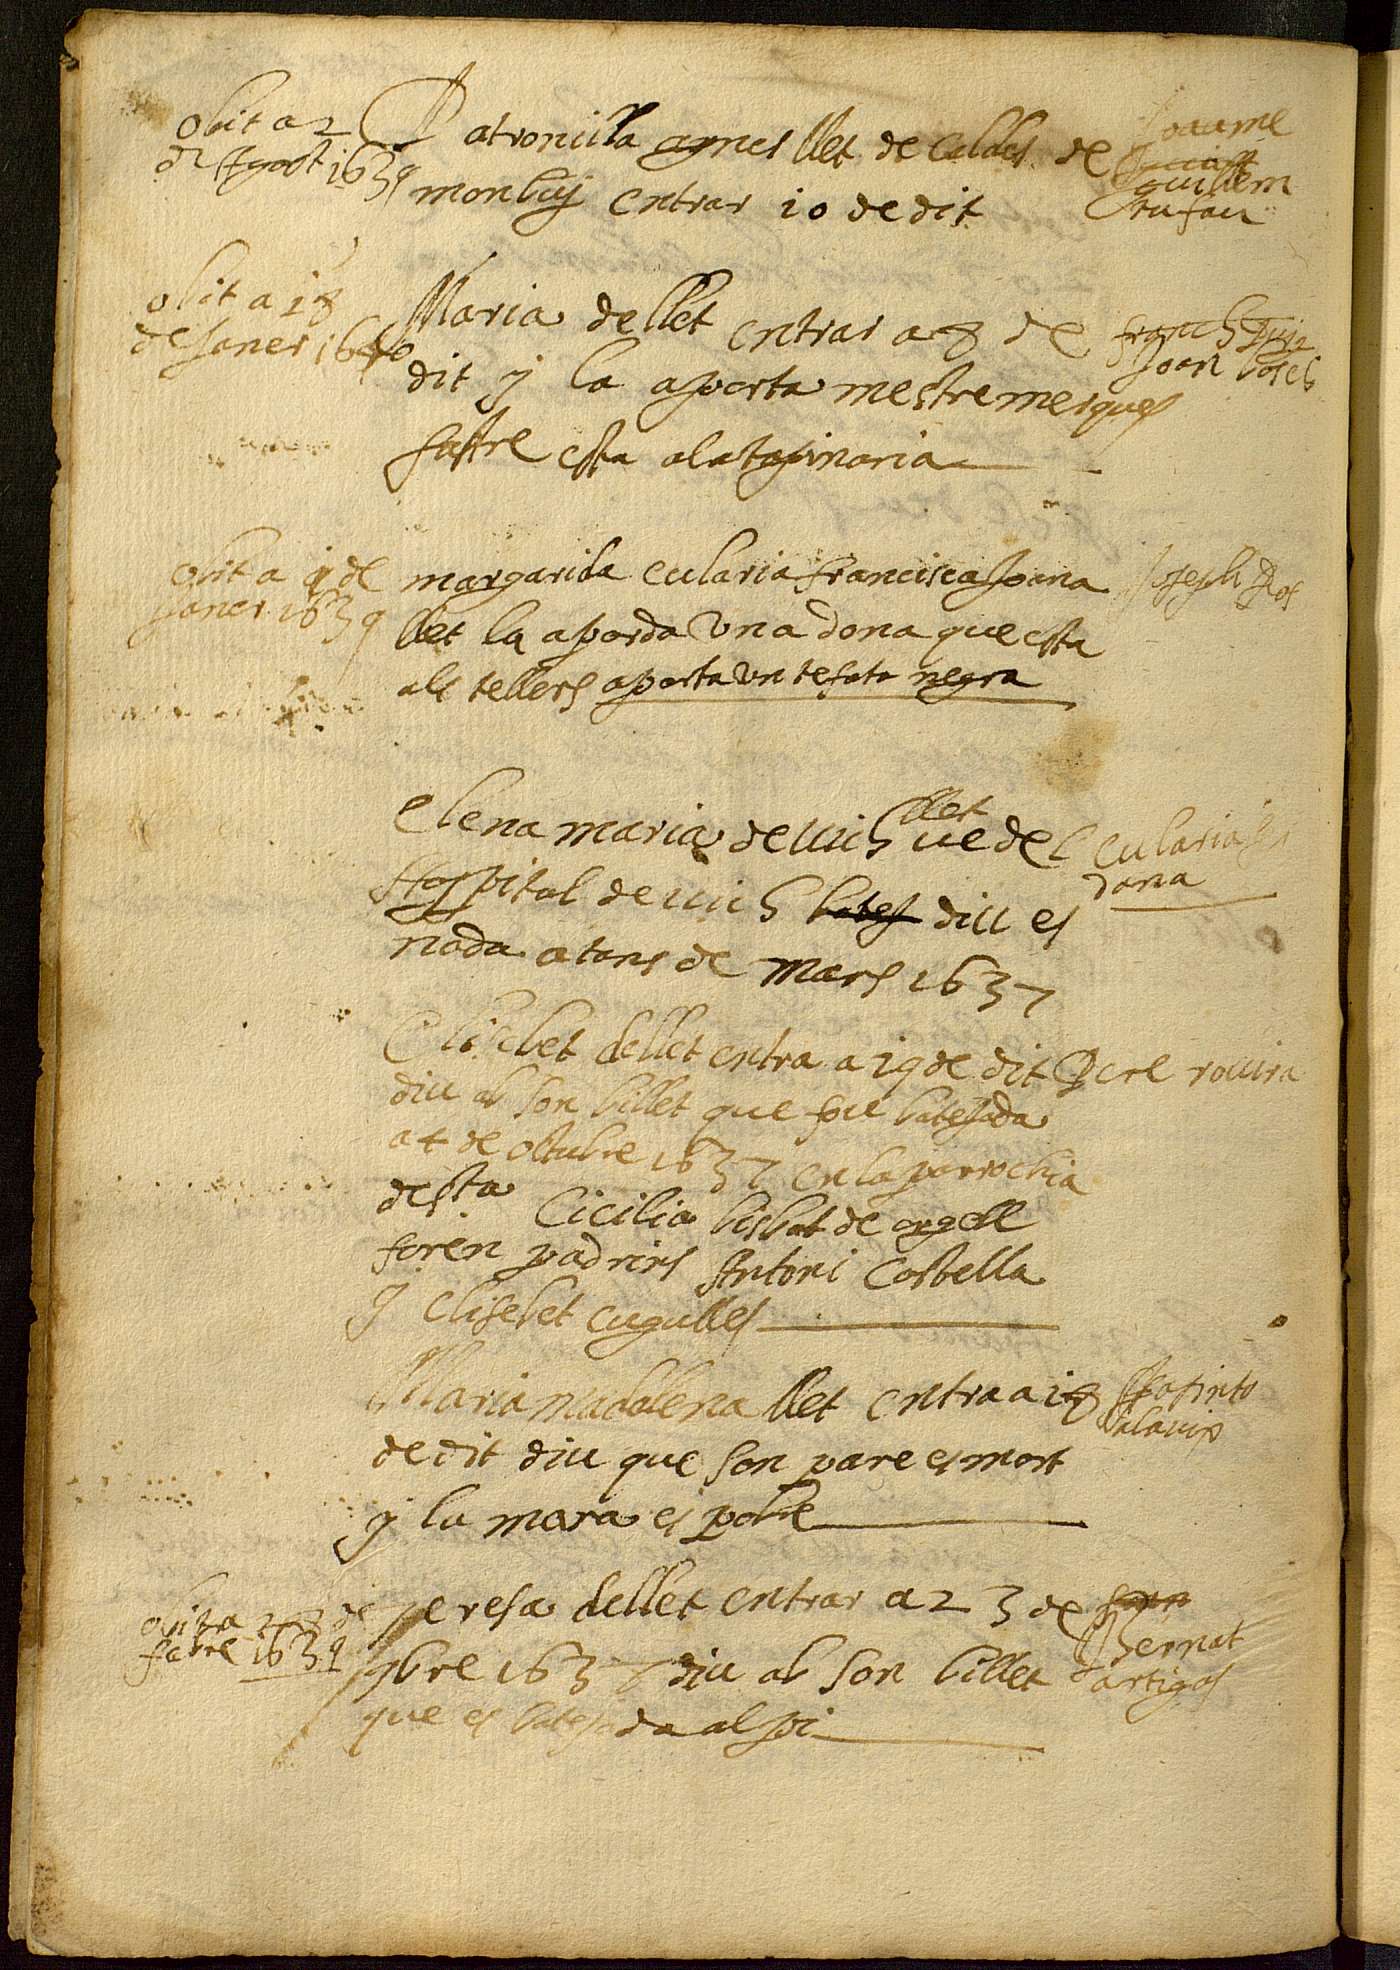 obit a 2
de Agost 1639
Patronilla agnes llet de Caldes de
monbuj entrar 10 de dit
Jaaume
guillem
rufau
obit a 18
de Janer 1640
Maria de llet entrar a 8 de
dit y la aporta mestre merques
sastre esta a la tapinaria
Joan bosch
obit a 9 de
Janer 1639
margarida eularia francisca Joana
llet la aporda una dona que esta
als tellers aporta un tefata negra
Joseph Ros
llet
Elena maria de uich ue del
Hospital de uich bates diu es
nada a tans de mars 1637
eularia
dona
Elisebet de llet entra a 19 de dit
diu ab son billet que fou batejada
a 4 de octubre 1637 en la parrochia
de sta Cicilia bisbat de orgell
foren padrins Antoni Costella
y elisebet cugulles
Pere rouira
Maria madalena llet entra a 18
de dit diu que son pare es mort
y la mara es pobre
Hiasinto
obit a 28 de
febre 1639
peresa de llet entrar a 23 de
9bre 1637 diu ab son billet
que es batejada al pi
Bernat
artigas